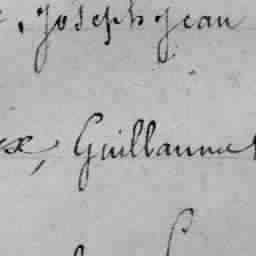 , Joseph Jean
x, Guillaume